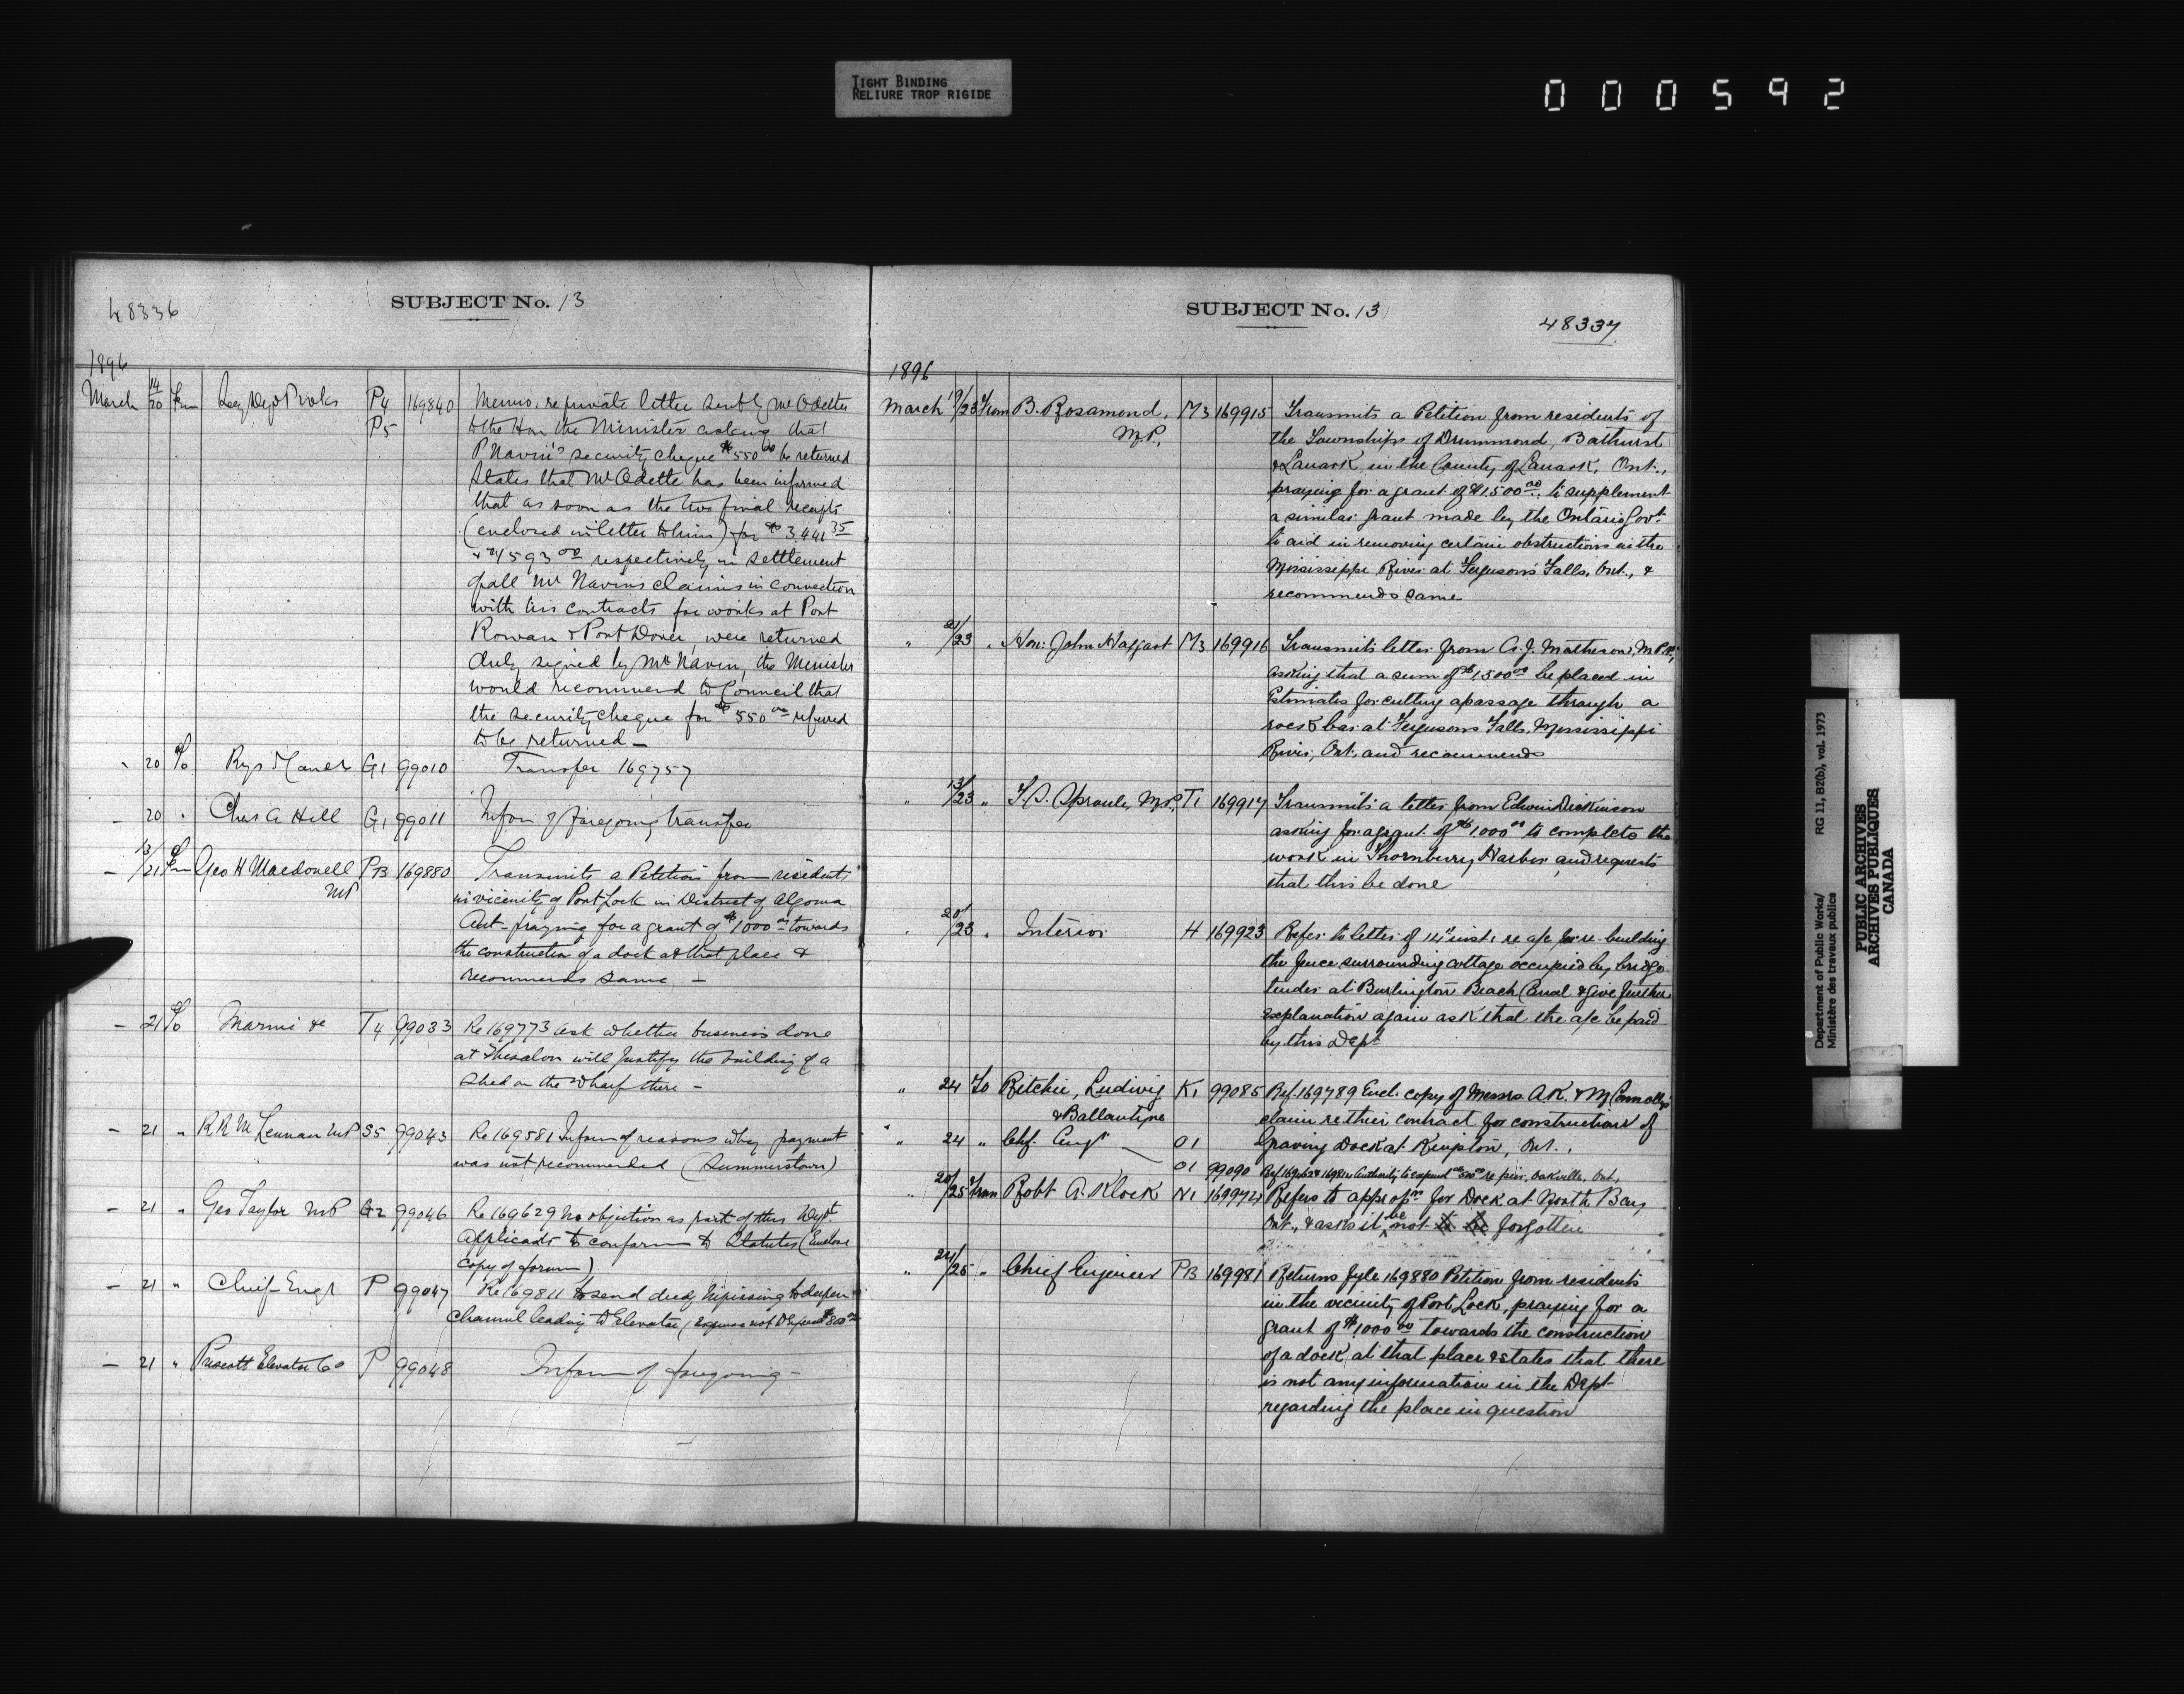 TIGHT BINDING
RELIURE TROP RIGIDE
000592
48336
SUBJECT No. 13
1896
March 14/20 Frm Secy Dep P Wks P4 169840 Memo. re private letter sent by Mr Odette
P5 to the Hon the Minister asking that
P Navin's security cheque $550 00 be returned
States that Mr Odette has been informed
that as soon as the two final receipts
(enclosed in letter to him) for $3,441 35
& $4593 00 respectively in settlement
of all Mr Navin's claims in connection
with his contracts for works at Port
Rowan & Port Dover, were returned
duly signed by Mr Navin, the Minister
would recommend to Council that
the security cheque for $550 00 referred
to be returned —
" 20 To Rys & Canals G1 99010 Transfer 169757
— 20 " Chas A Hill G1 99011 Inform of foregoing transfer
— 13/21 Frm Geo H Macdonell P13 169880 Transmits a Petition from residents
MP in vicinity of Port Lock in District of Algoma
Ont - praying for a grant of $1000 00 towards
the construction of a dock at that place &
recommends same —
— 21 To Marine &c T4 99033 Re 169773 ask whether business done
at Thessalon will justify the building of a
shed on the wharf there —
— 21 " R R McLennan MP S5 99043 Re 169581 Inform of reasons why payment
was not recommended (Summerstown)
— 21 " Geo Taylor MP G2 99046 Re 169629 No objection as part of this Dept.
Applicants to conform to Statutes (Enclose
copy of form)
— 21 " Chief Engr P 99047 Re 169811 to send dredge Nipissing to deepen
channel leading to Elevator (expense not to exceed $800 00
— 21 " Prescott Elevator Co P 99048 Inform of foregoing —
SUBJECT No. 13
48337
1896
March 19/23 From B. Rosamond, M3 169915 Transmits a Petition from residents of
M.P. the Townships of Drummond, Bathurst
& Lanark, in the County of Lanark, Ont.,
praying for a grant of $1,500 00, to supplement
a similar grant made by the Ontario Govt.
to aid in removing certain obstructions in the
Mississippi River at Ferguson's Falls, Ont., &
recommends same
" 21/23 " Hon: John Haggart M3 169916 Transmits letter from A. J. Matheson, M.P.P.,
asking that a sum of $1,500 00 be placed in
Estimates for cutting a passage through a
rock bar at Fergusons Falls, Mississippi
River, Ont., and recommends
" 13/23 " T. S. Sproule, M.P. T1 169917 Transmits a letter from Edwin Dickinson
asking for a grant of $1000 00 to complete the
work in Thornbury Harbor, and requests
that this be done
" 20/23 " Interior H 169923 Refer to letter of 14th inst: re a/c for re-building
the fence surrounding cottage occupied by bridge
tender at Burlington Beach Canal & give further
explanation again ask that the a/c be paid
by this Dept
" 24 To Ritchie, Ludwig K1 99085 Ref. 169789 Encl. copy of Messrs A.K. & M Connolly's
& Ballantyne claim re their contract for construction of
" 24 " Chf. Engr O1 Graving Dock at Kingston, Ont.,
O1 99090 authority to expend $500 00 re pier, Oakville, Ont.,
" 20/25 From Robt A. Klock N1 169974 Refers to appropn for Dock at North Bay
Ont., & asks it be not to be forgotten
" 24/25 " Chief Engineer P13 169981 Returns fyle 169880 Petition from residents
in the vicinity of Port Lock, praying for a
grant of $1000 00 towards the construction
of a dock at that place & states that there
is not any information in the Dept
regarding the place in question
Department of Public Works/ RG 11, B2(b), vol. 1973
Ministère des travaux publics
PUBLIC ARCHIVES
ARCHIVES PUBLIQUES
CANADA